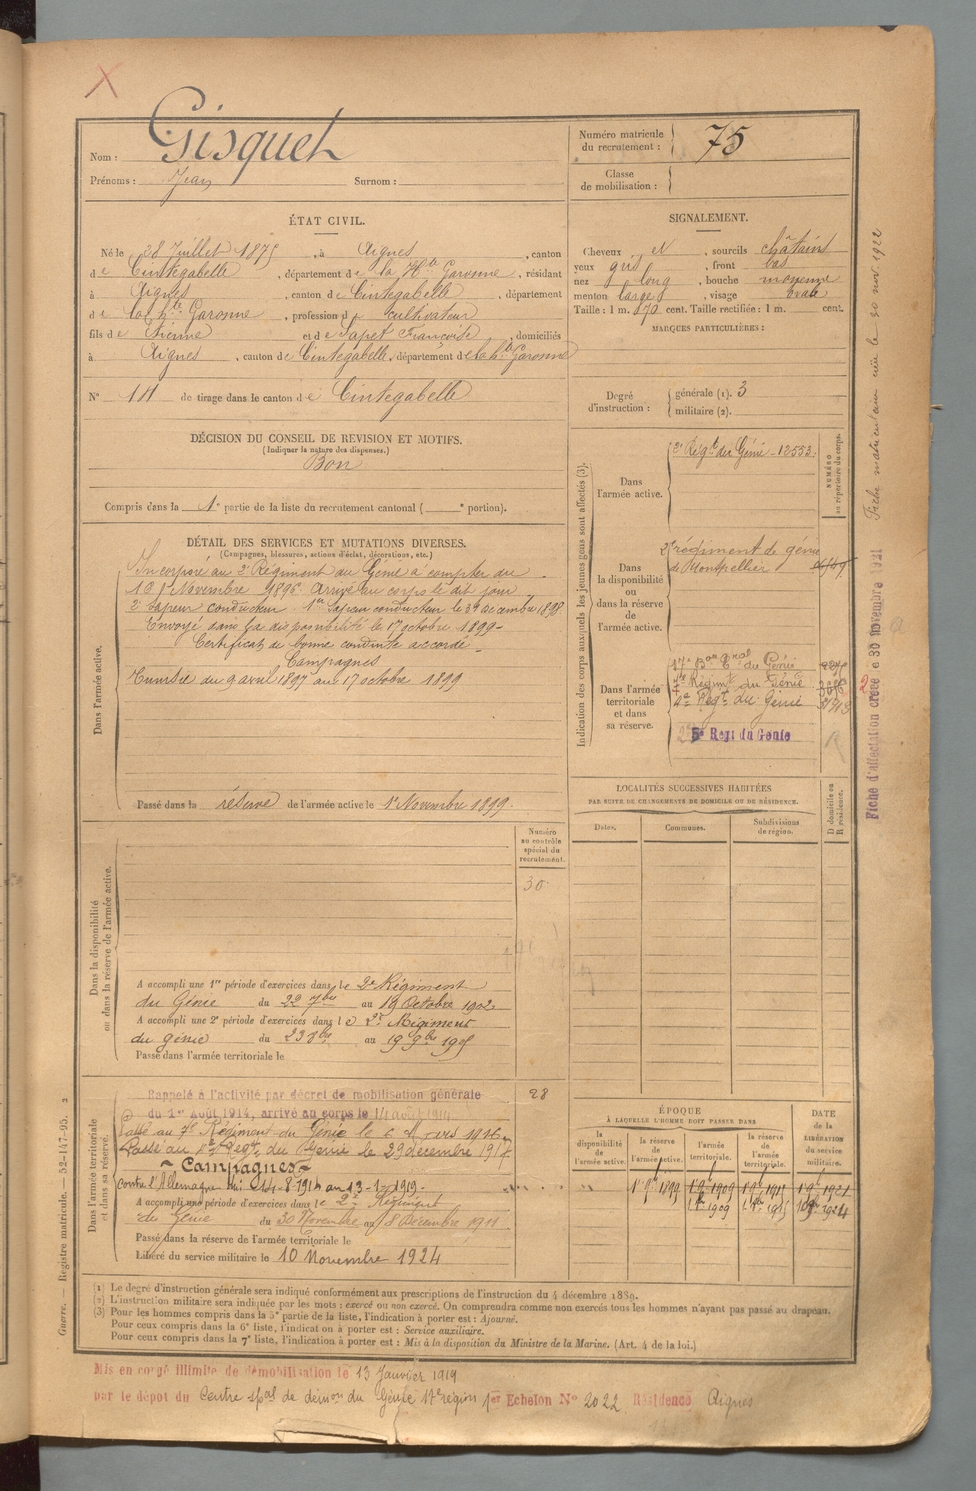 Nom : Gisquet
Prénoms : Jean Surnom :
Numéro matricule du recrutement : 75
Classe de mobilisation :
ÉTAT CIVIL.
Né le 28 Juillet 1875, à Aignes, canton
de Cintegabelle, département de la Hte Garonne, résidant
à Aignes, canton de Cintegabelle, département
de la Hte Garonne, profession de cultivateur
fils de Etienne et de Sapet Françoise, domiciliés
à Aignes, canton de Cintegabelle, département de la Hte Garonne
No de tirage dans le canton de Cintegabelle
SIGNALEMENT.
Cheveux et, sourcils châtains
yeux gris, front bas
nez long, bouche moyenne
menton large, visage ovale
Taille : 1 m. 670 cent. Taille rectifiée : 1 m. cent.
MARQUES PARTICULIÈRES :
Degré d'instruction : générale (1). 3
militaire (2).
DÉCISION DU CONSEIL DE REVISION ET MOTIFS.
(Indiquer la nature des dispenses.)
Bon
Compris dans la 1e partie de la liste du recrutement cantonal ( e portion).
DÉTAIL DES SERVICES ET MUTATIONS DIVERSES.
(Campagnes, blessures, actions d'éclat, décorations, etc.)
Dans l'armée active.
Incorporé au 2e Régiment du Génie à compter du
Novembre 1896. Arrivé au corps le dit jour
2e Sapeur conducteur. 1er Sapeur conducteur le décembre 1898
Envoyé dans la disponibilité le 17 octobre 1899-
Certificat de bonne conduite accordé-
Campagnes
Tunisie du 9 avril 1897 au 17 octobre 1899
Passé dans la réserve de l'armée active le 1er Novembre 1899.
Indication des corps auxquels les jeunes gens sont affectés (3).
NUMÉRO au répertoire du corps.
Dans l'armée active.
2e Régt du Génie - 12553.
Dans la disponibilité ou dans la réserve de l'armée active.
2e régiment de génie
de Montpellier
Dans l'armée territoriale et dans sa réserve.
17e Bon Cnal du Génie
7e Régimt du Génie
Régt du Génie
5e Regt du Génie
LOCALITÉS SUCCESSIVES HABITÉES
PAR SUITE DE CHANGEMENTS DE DOMICILE OU DE RÉSIDENCE.
Dates. Communes. Subdivisions de région. D domicile ou R résidence.
Dans la disponibilité ou dans la réserve de l'armée active.
Numéro au contrôle spécial du recrutement.
30
A accompli une 1re période d'exercices dans le 2e Régiment
du Génie du 22 7bre au 19 Octobre 1902
A accompli une 2e période d'exercices dans le 2e Régiment
du génie du 23 8bre au 19 9bre 1905
Passé dans l'armée territoriale le
Dans l'armée territoriale et dans sa réserve.
28
Rappelé à l'activité par décret de mobilisation générale
du 1er Août 1914, arrivé au corps le 14 août 1914
Passé au 7e Régiment du Génie le 6 Mars 1916
Passé au Régt du Génie le 29 décembre 1917.
- Campagnes -
contre l'Allemagne du 14-8-1914 au 13-1-1919.
A accompli une période d'exercices dans le 2e Régiment
du Génie du 30 Novembre au 8 Décembre 1911
Passé dans la réserve de l'armée territoriale le
Libéré du service militaire le 10 Novembre 1924
ÉPOQUE
À LAQUELLE L'HOMME DOIT PASSER DANS
la disponibilité de l'armée active. la réserve de l'armée active. l'armée territoriale. la réserve de l'armée territoriale.
DATE de la LIBÉRATION du service militaire.
1er 9bre 1899 1er 9bre 1909 1er 9bre 1915 1er 9bre 1921
1er 1909 1er 1915 10 9bre 1924
(1) Le degré d'instruction générale sera indiqué conformément aux prescriptions de l'instruction du 4 décembre 1889.
(2) L'instruction militaire sera indiquée par les mots : exercé ou non exercé. On comprendra comme non exercés tous les hommes n'ayant pas passé au drapeau.
(3) Pour les hommes compris dans la 5e partie de la liste, l'indication à porter est : Ajourné.
Pour ceux compris dans la 6e liste, l'indication à porter est : Service auxiliaire.
Pour ceux compris dans la 7e liste, l'indication à porter est : Mis à la disposition du Ministre de la Marine. (Art. 4 de la loi.)
Mis en congé illimité de démobilisation le 13 Janvier 1919
par le dépot du Centre spal de démon du Génie 17e région 1er Echelon No 2022 Résidence Aignes
Guerre. — Registre matricule. — 52-147-95. 2
Fiche d'affectation créée le 30 novembre 1921
Fiche matriculaire créée le 30 nov. 1922